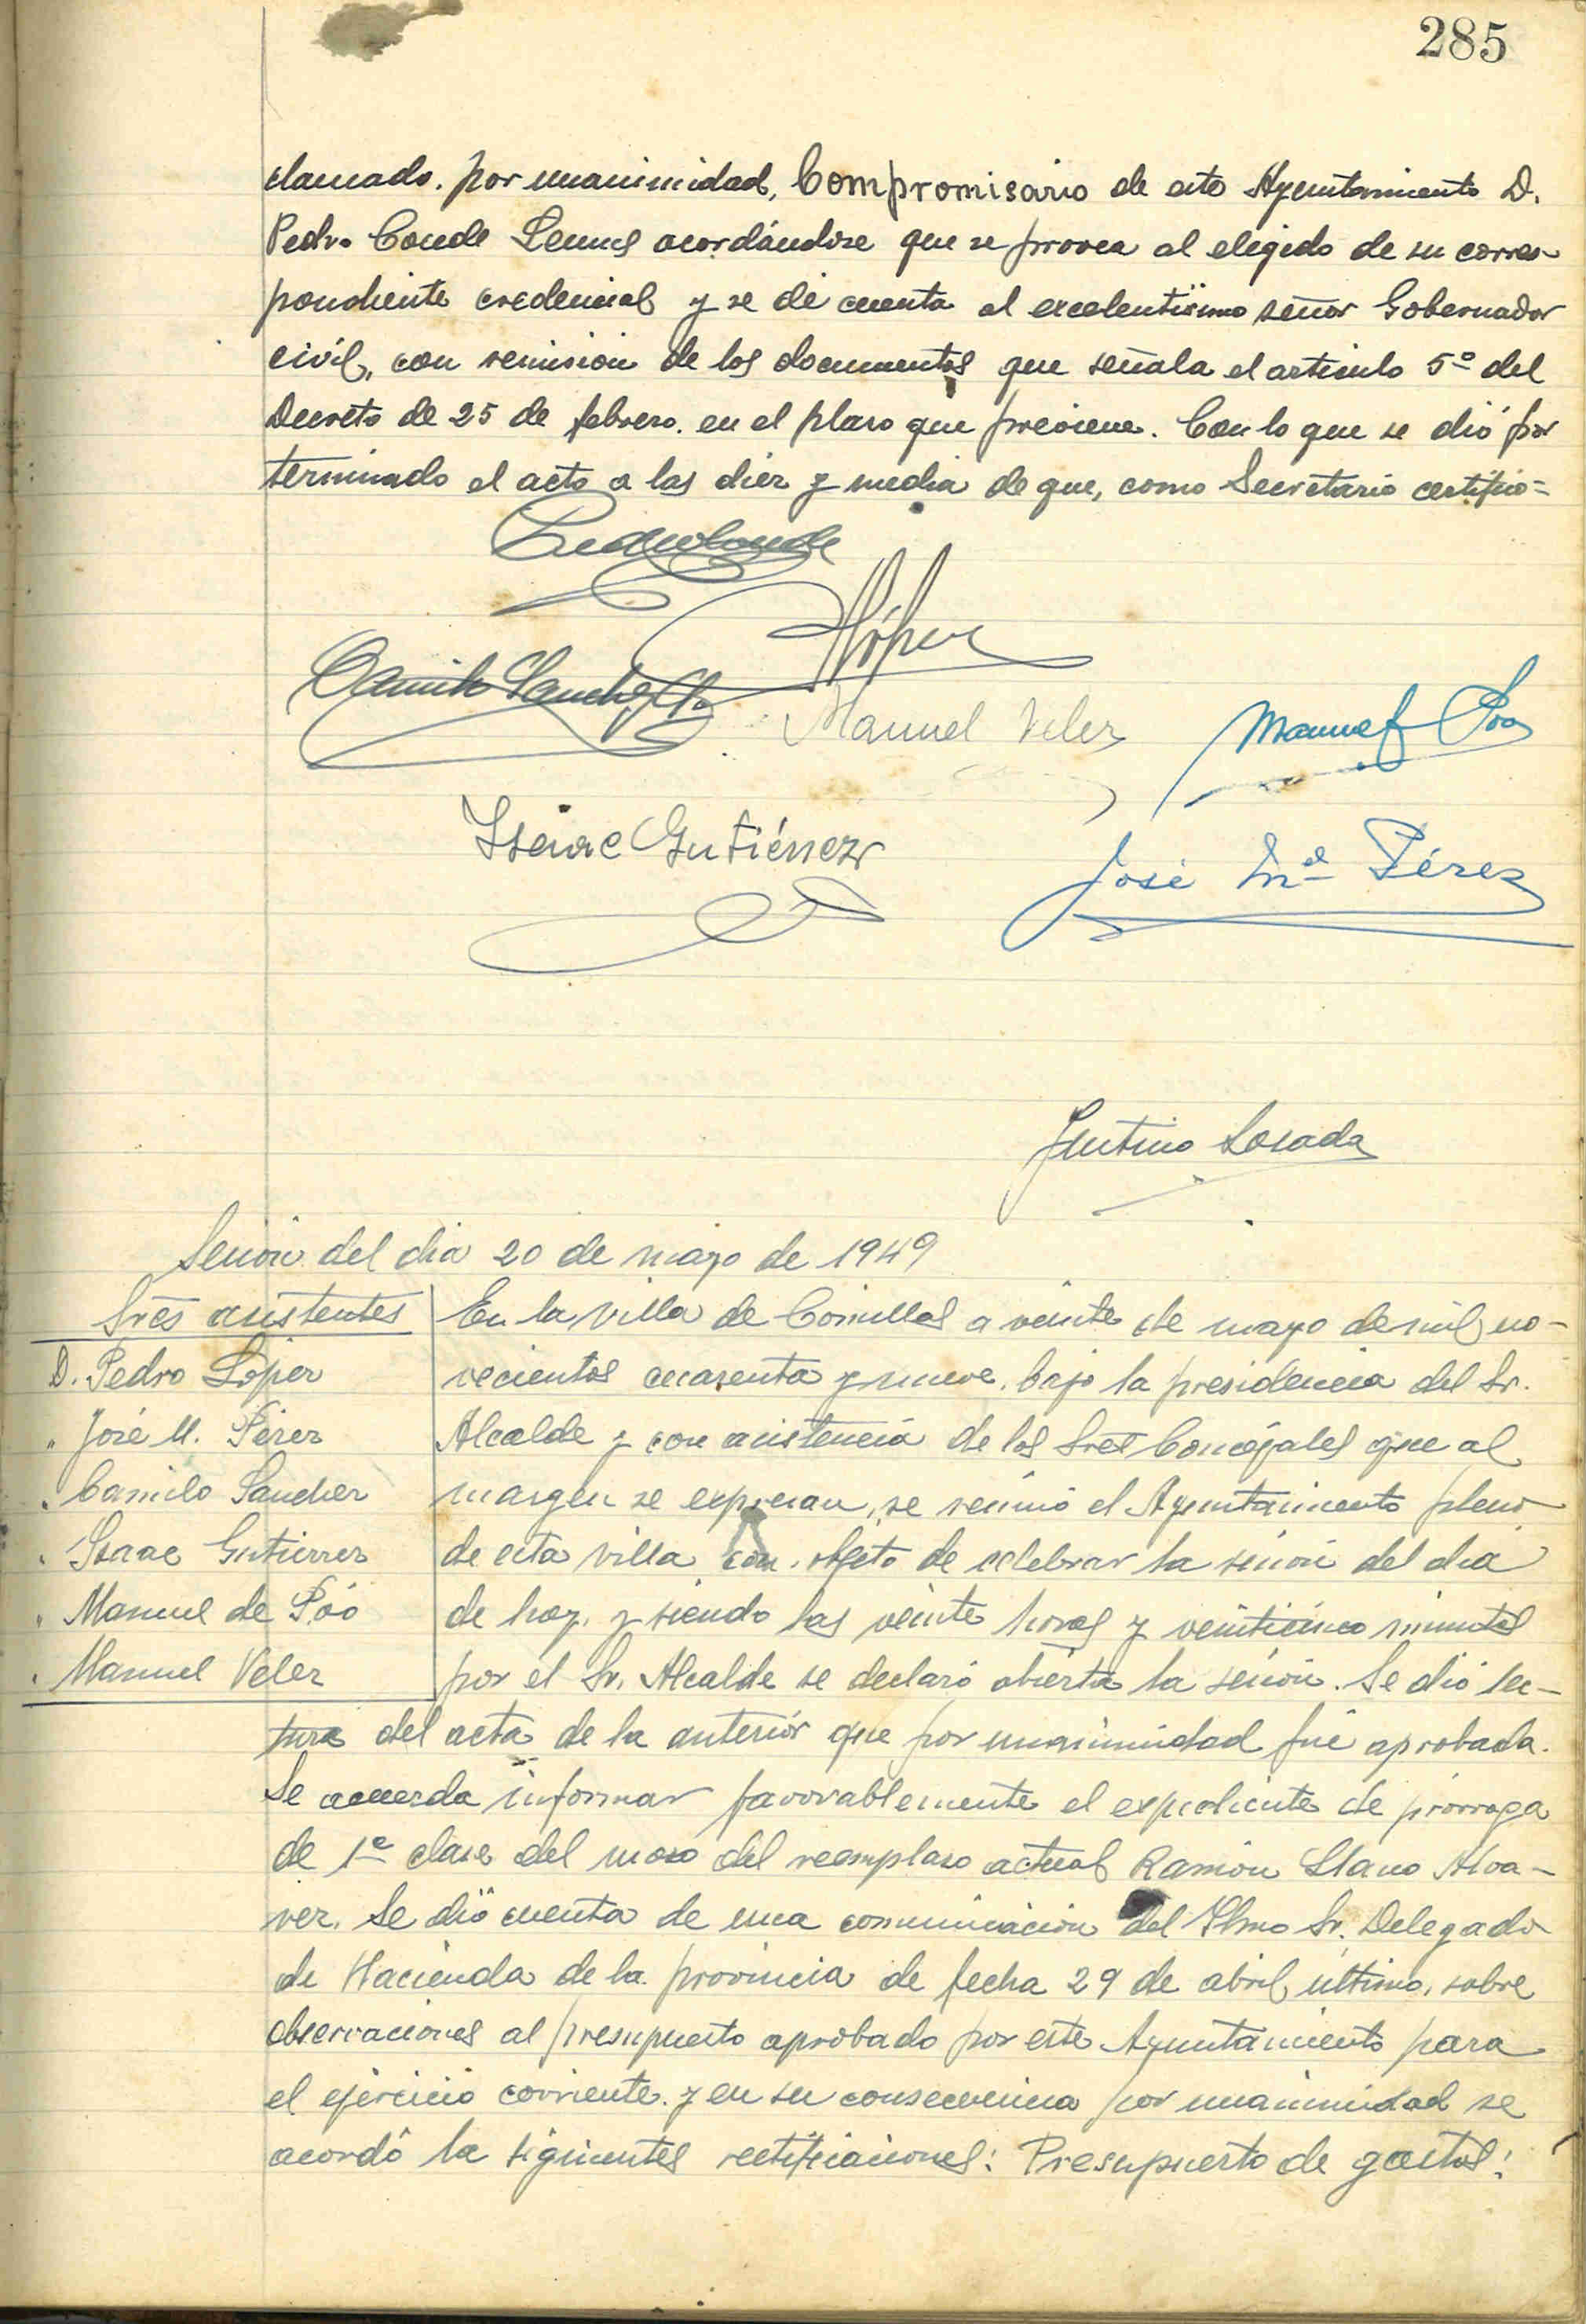 285
clamado. por unanimidad, Compromisario de este Ayuntamiento D.
Pedro Conde Lemus acordándose que se provea al elegido de su corres-
pondiente credencial y se dé cuenta al excelentísimo señor Gobernador
civil, con remision de los documentos que señala el articulo 5º del
Decreto de 25 de febrero. en el plazo que previene. Con lo que se dió por
terminado el acto a las diez y media de que, como Secretario certifico=
Pedro Conde
López
Camilo Sanchez
Manuel Velez
Manuel Póo
Isaac Gutiérrez
José Mª Pérez
Justino Losada
Sesión del dia 20 de mayo de 1949
Sres asistentes
D. Pedro López
" José M. Pérez
" Camilo Sanchez
" Isaac Gutierrez
" Manuel de Póo
" Manuel Velez
En la Villa de Comillas a veinte de mayo de mil no-
vecientos cuarenta y nueve, bajo la presidencia del Sr.
Alcalde y con asistencia de los Sres Concejales que al
margen se expresan, se reunió el Ayuntamiento pleno
de esta villa con objeto de celebrar la sesión del dia
de hoy, y siendo las veinte horas y veinticinco minutos
por el Sr. Alcalde se declaró abierta la sesión. Se dió lec-
tura del acta de la anterior que por unanimidad fué aprobada.
Se acuerda informar favorablemente el expediente de prorroga
de 1ª clase del mozo del reemplazo actual Ramón Llano Alva-
rez. Se dió cuenta de una comunicación del Ilmo Sr. Delegado
de Hacienda de la provincia de fecha 29 de abril último, sobre
observaciones al presupuesto aprobado por este Ayuntamiento para
el ejercicio corriente. y en su consecuencia por unanimidad se
acordó la siguientes rectificaciones: Presupuesto de gastos: